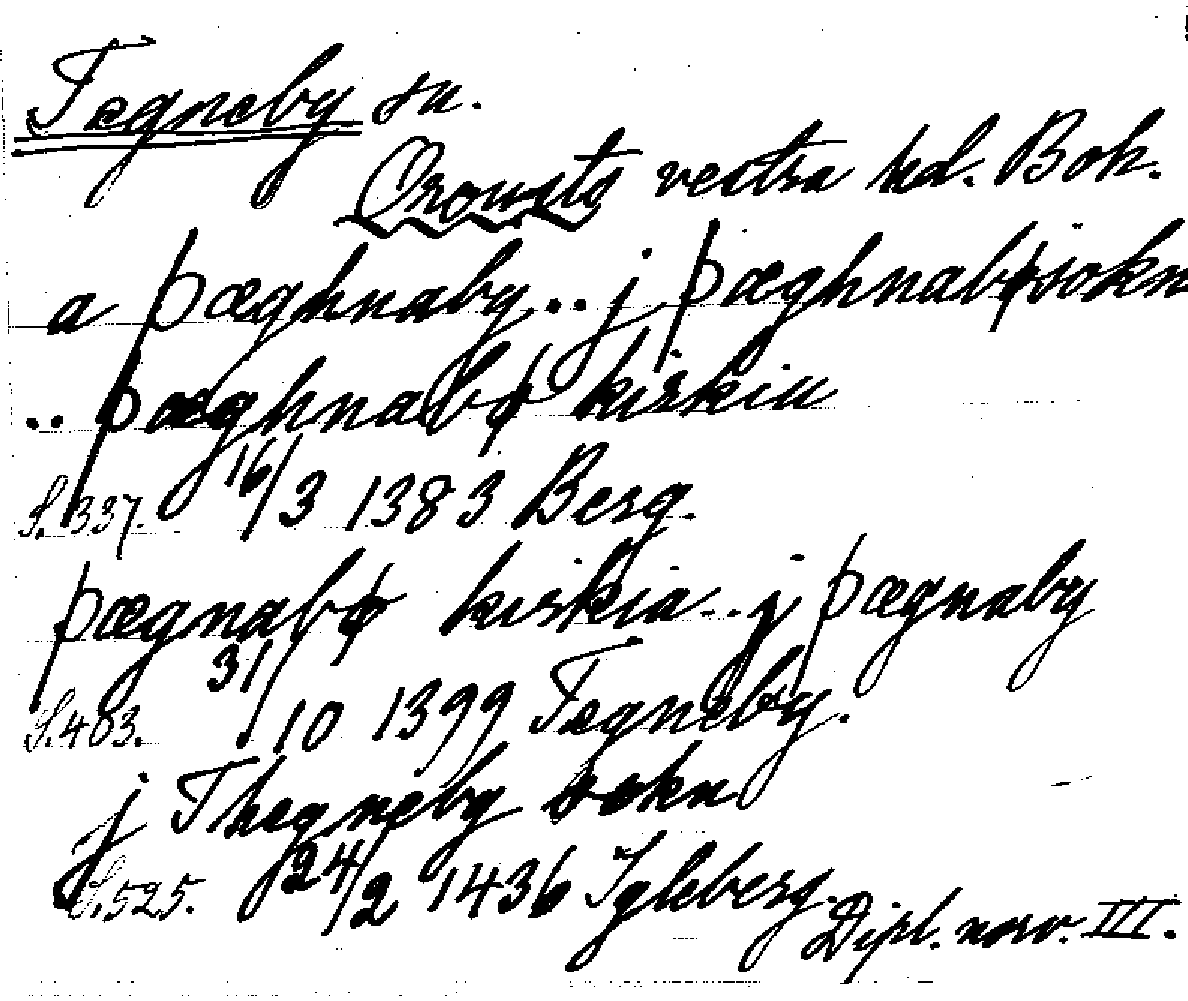 Tegneby sn.
Orousts vestra hd. Boh.
a þæghnaby .. j þæghnabøsokn
.. þæghnabø kirkiu
S. 337. 16/3 1383 Berg.
þægnabø kirkia .. j þægnaby
S. 403. 31/10 1399 Tegneby.
j Thegneby sokn
S. 525. 24/2 1436 Igleberg.
Dipl. norv. III.